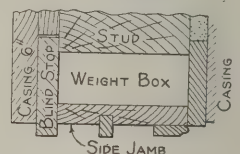 STUD
CASING 6"
BLIND STOP
WEIGHT BOX
CASING
SIDE JAMB